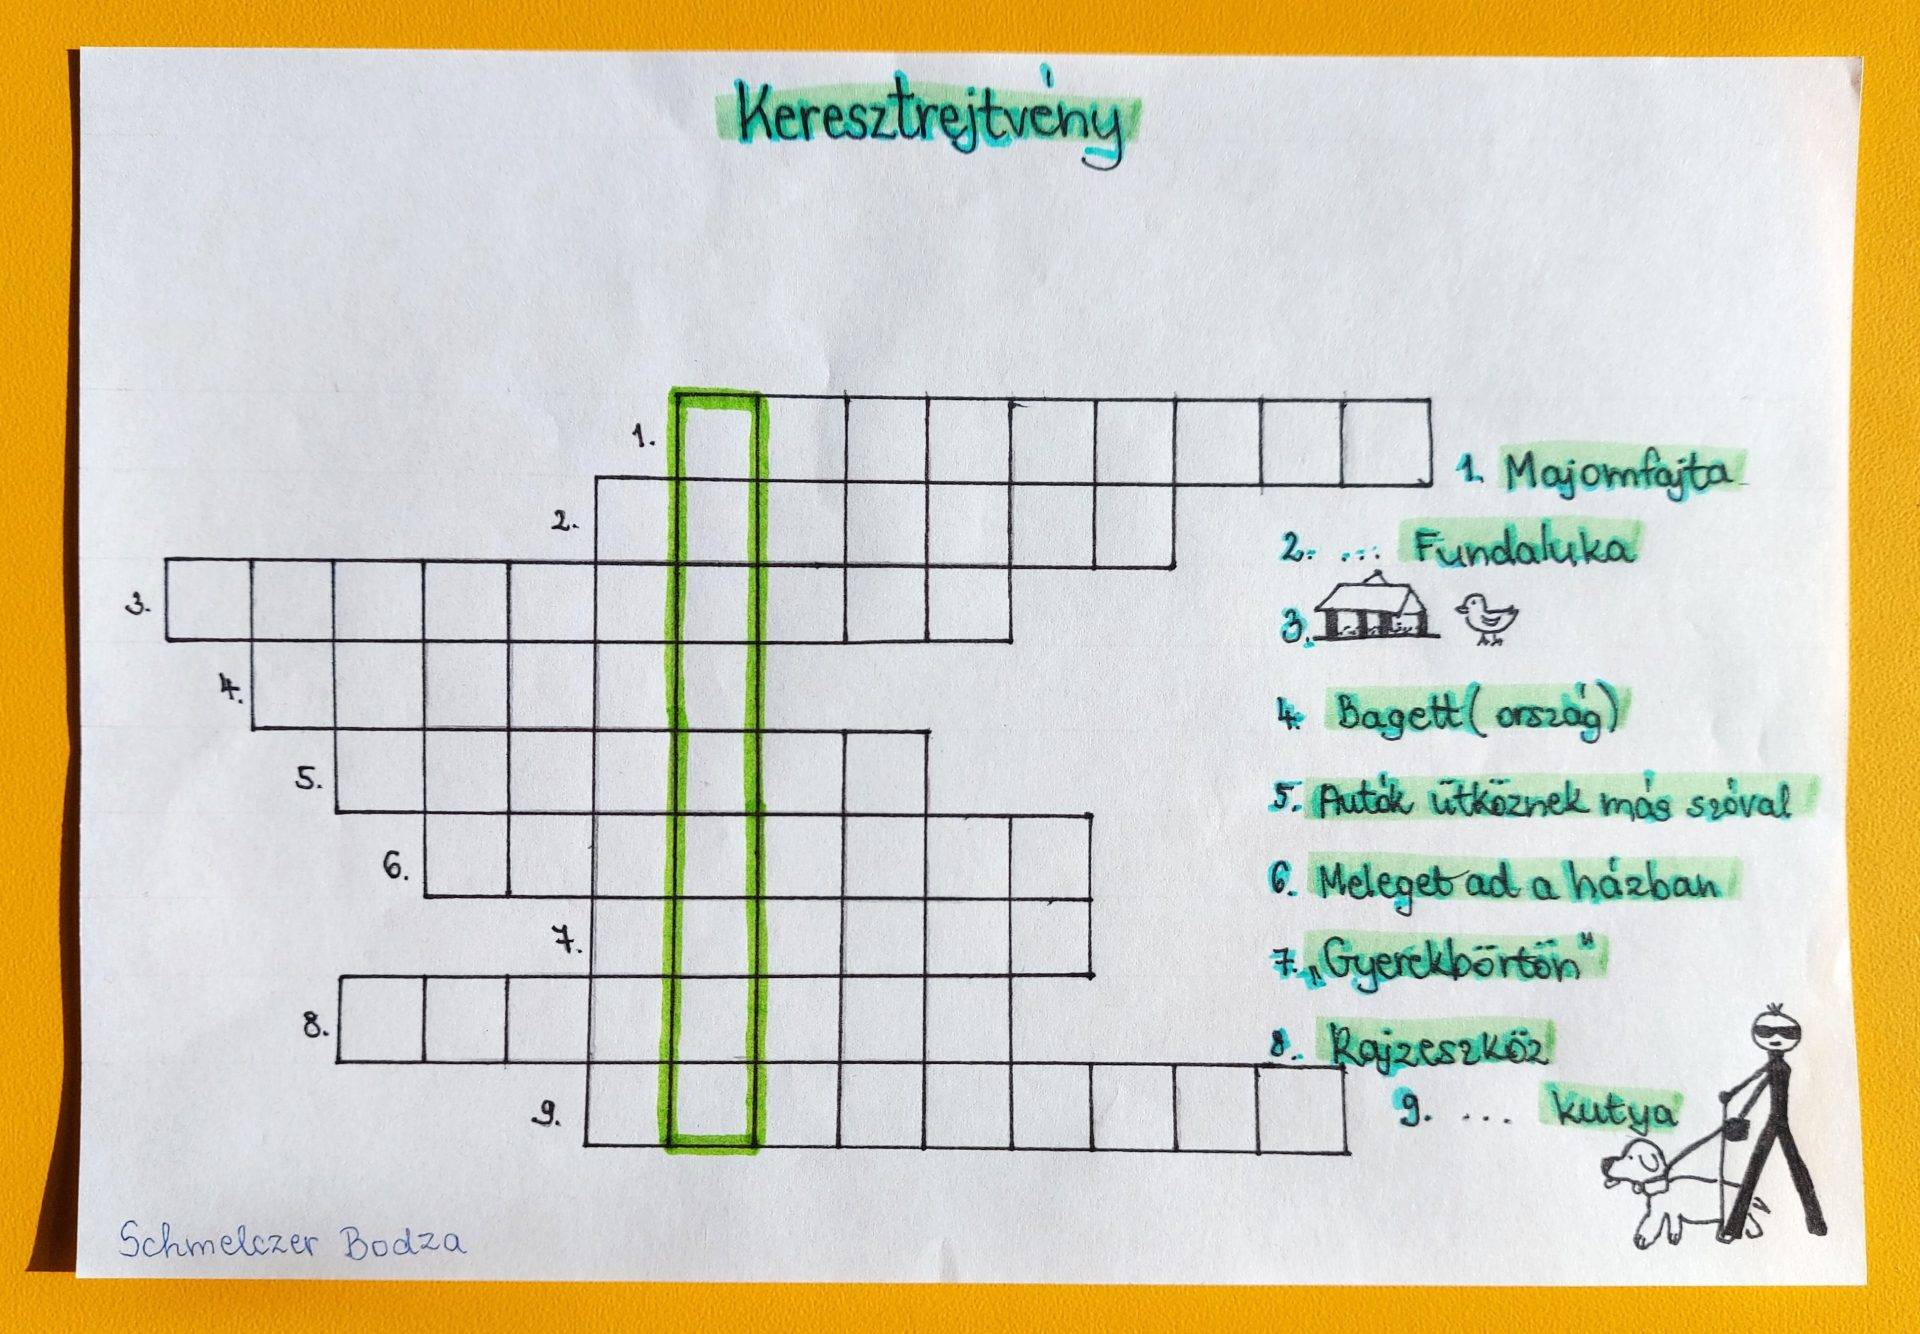 Keresztrejtvény
1.
2.
3.
4.
5.
6.
7.
8.
9.
1. Majomfajta
2. ... Fundaluka
3.
4. Bagett (ország)
5. Autók ütköznek más szóval
6. Meleget ad a házban
7. „Gyerekbörtön"
8. Rajzeszköz
9. ... kutya
Schmelczer Bodza